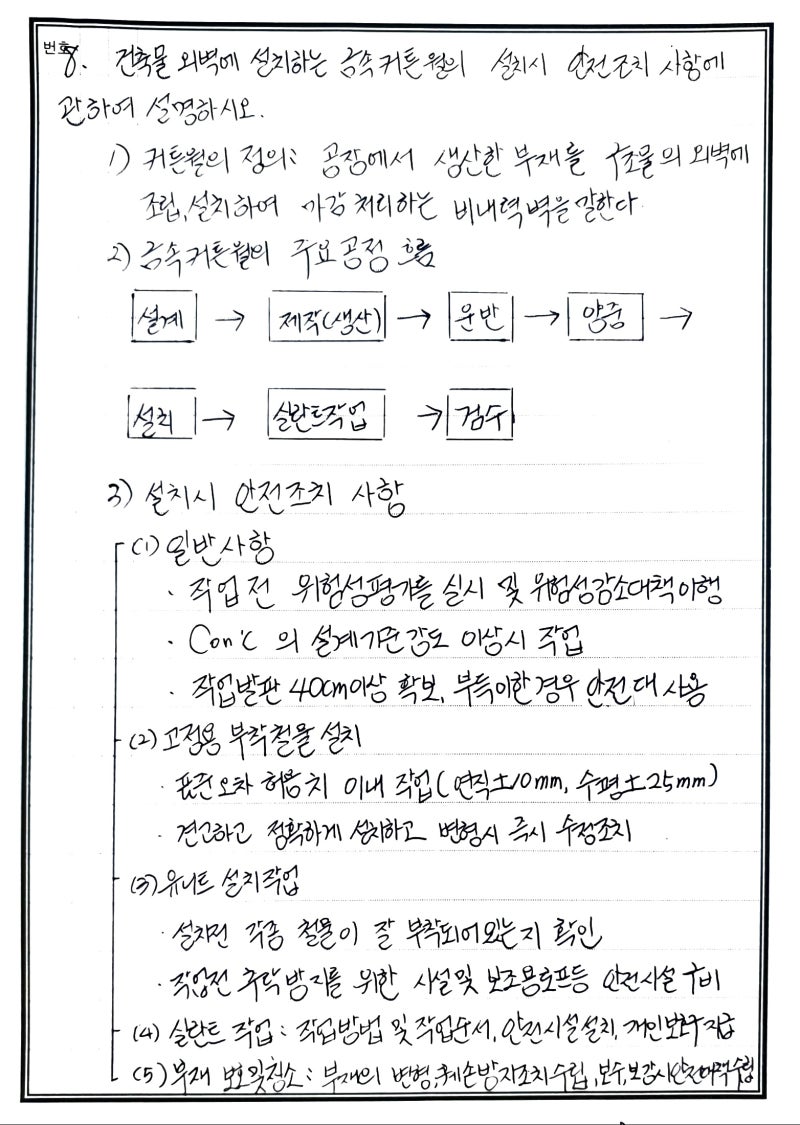 번호
8. 건축물 외벽에 설치하는 금속커튼월의 설치시 안전조치 사항에
관하여 설명하시오.
1) 커튼월의 정의: 공장에서 생산한 부재를 구조물의 외벽에
조립,설치하여 마감처리하는 비내력벽을 말한다.
2) 금속커튼월의 주요공정 흐름
설계 → 제작(생산) → 운반 → 양중 →
설치 → 실란트작업 → 검수
3) 설치시 안전조치 사항
(1) 일반사항
· 작업 전 위험성평가를 실시 및 위험성감소대책이행
· Con'c 의 설계기준강도 이상시 작업
· 작업발판 40cm이상 확보, 부득이한 경우 안전대 사용
(2) 고정용 부착철물 설치
· 표준오차 허용치 이내 작업(연직±10mm, 수평±25mm)
· 견고하고 정확하게 설치하고 변형시 즉시 수정조치
(3) 유니트 설치작업
· 설치전 각종 철물이 잘 부착되어있는지 확인
· 작업전 추락방지를 위한 시설및 보조용로프등 안전시설 구비
(4) 실란트 작업: 작업방법 및 작업순서, 안전시설설치, 개인보호구지급
(5) 부재 보호및청소: 부재의 변형,훼손방지조치수립, 보수,보강시안전대책수립